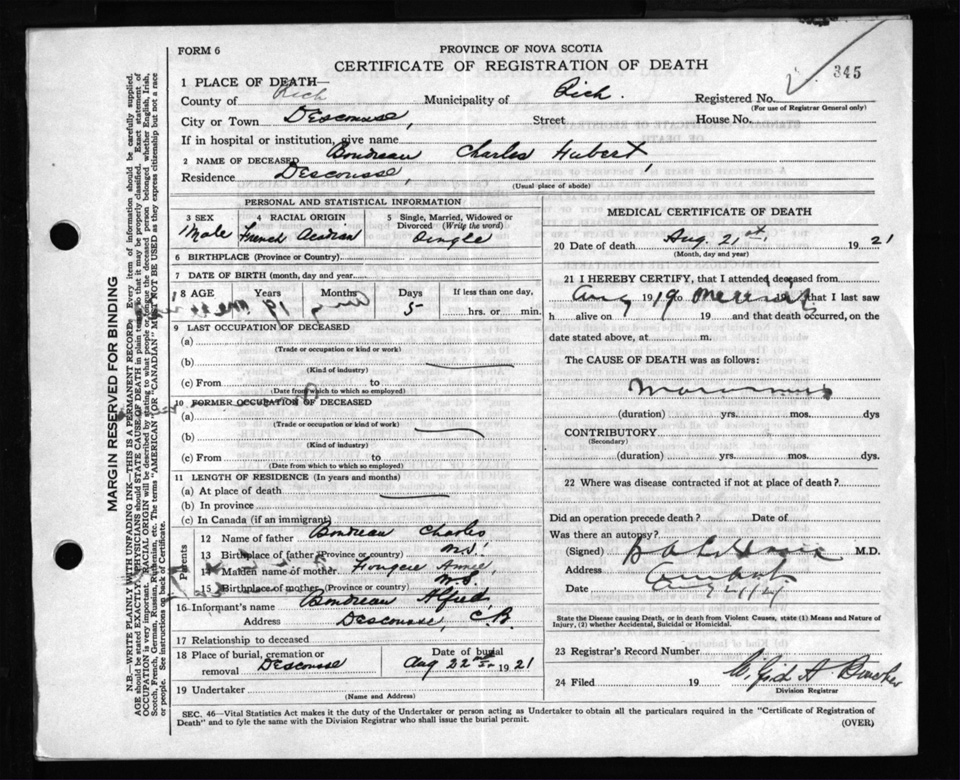 FORM 6
PROVINCE OF NOVA SCOTIA
CERTIFICATE OF REGISTRATION OF DEATH
345
1 PLACE OF DEATH—
County of Rich Municipality of Rich. Registered No.
(For use of Registrar General only)
City or Town Descousse, Street House No.
If in hospital or institution, give name
2 NAME OF DECEASED Boudreau Charles Hubert,
Residence Descousse,
(Usual place of abode)
PERSONAL AND STATISTICAL INFORMATION
3 SEX 4 RACIAL ORIGIN 5 Single, Married, Widowed or Divorced (Write the word)
Male French Acadian Single
6 BIRTHPLACE (Province or County)
7 DATE OF BIRTH (month, day and year)
8 AGE Years Months Days If less than one day,
5 hrs. or min.
9 LAST OCCUPATION OF DECEASED
(a)
(Trade or occupation or kind or work)
(b)
(Kind of industry)
(c) From to
(Date from which to which so employed)
10 FORMER OCCUPATION OF DECEASED
(a)
(Trade or occupation or kind or work)
(b)
(Kind of industry)
(c) From to
(Date from which to which so employed)
11 LENGTH OF RESIDENCE (In years and months)
(a) At place of death
(b) In province
(c) In Canada (if an immigrant)
Parents
12 Name of father Boudreau Charles
13 Birthplace of father (Province or country) N.S.
14 Maiden name of mother Fougere Annie,
15 Birthplace of mother (Province or country) N.S.
16 Informant's name Boudreau Alfred
Address Descousse, C.B.
17 Relationship to deceased
18 Place of burial, cremation or removal Descousse Date of burial Aug 22nd 1921
19 Undertaker
(Name and Address)
MEDICAL CERTIFICATE OF DEATH
20 Date of death Aug. 21st. 1921
(Month, day and year)
21 I HEREBY CERTIFY, that I attended deceased from
Aug 19 that I last saw
h alive on 19 and that death occurred, on the
date stated above, at m.
The CAUSE OF DEATH was as follows:
(duration) yrs. mos. dys
CONTRIBUTORY
(Secondary)
(duration) yrs. mos. dys.
22 Where was disease contracted if not at place of death?
Did an operation precede death? Date of
Was there an autopsy?
(Signed) M.D.
Address
Date
State the Disease causing Death, or in death from Violent Causes, state (1) Means and Nature of Injury, (2) whether Accidental, Suicidal or Homicidal.
23 Registrar's Record Number
24 Filed 19
Division Registrar
SEC. 46—Vital Statistics Act makes it the duty of the Undertaker or person acting as Undertaker to obtain all the particulars required in the "Certificate of Registration of
Death" and to fyle the same with the Division Registrar who shall issue the burial permit.
(OVER)
MARGIN RESERVED FOR BINDING
N.B.—WRITE PLAINLY WITH UNFADING INK—THIS IS A PERMANENT RECORD. Every item of information should be carefully supplied.
AGE should be stated EXACTLY. PHYSICIANS should STATE CAUSE OF DEATH in plain terms, so that it may be properly classified. Exact statement of
OCCUPATION is very important. RACIAL ORIGIN will be described by stating to what people or tongue the deceased person belonged whether English, Irish,
Scotch, French, German, Russian, Ruthenian, etc. The terms "AMERICAN" OR "CANADIAN" MUST NOT BE USED as they express citizenship but not a race
or people. See instructions on back of Certificate.